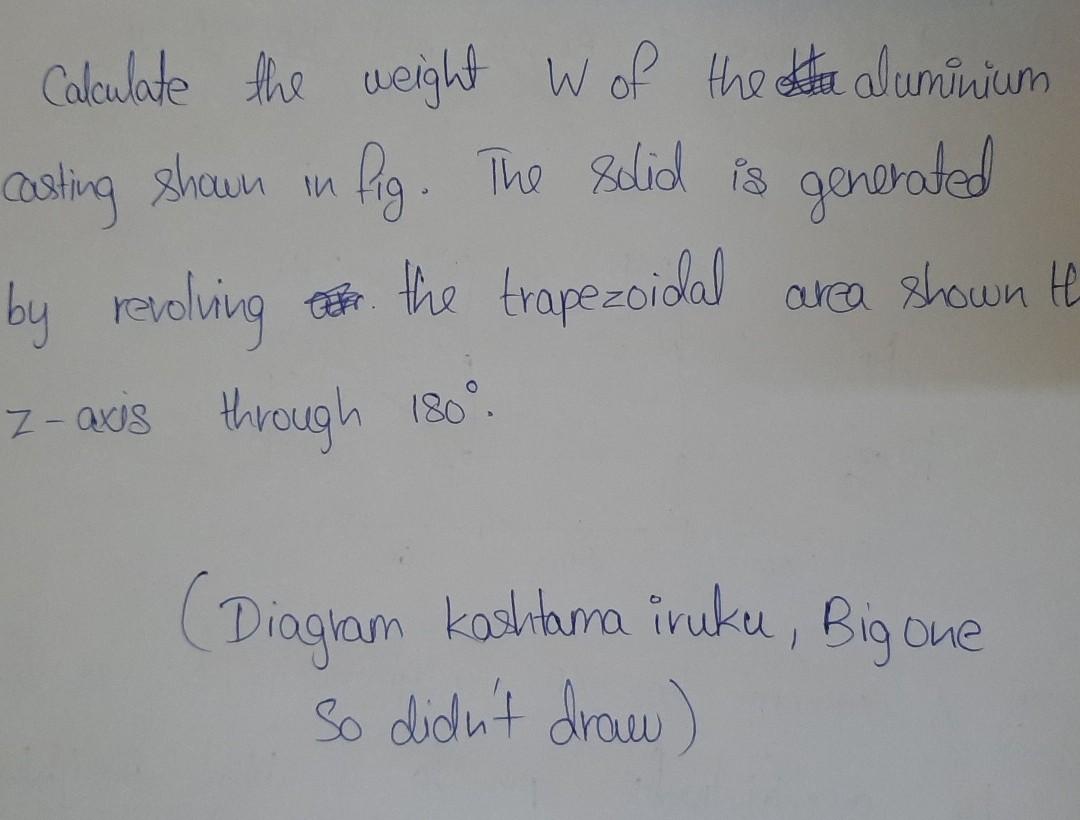 Calculate the weight W of the aluminium
casting shown in fig. The solid is generated
by revolving the trapezoidal area shown
z-axis through 180°.
(Diagram kashtama iruku, Big one
so didn't draw)